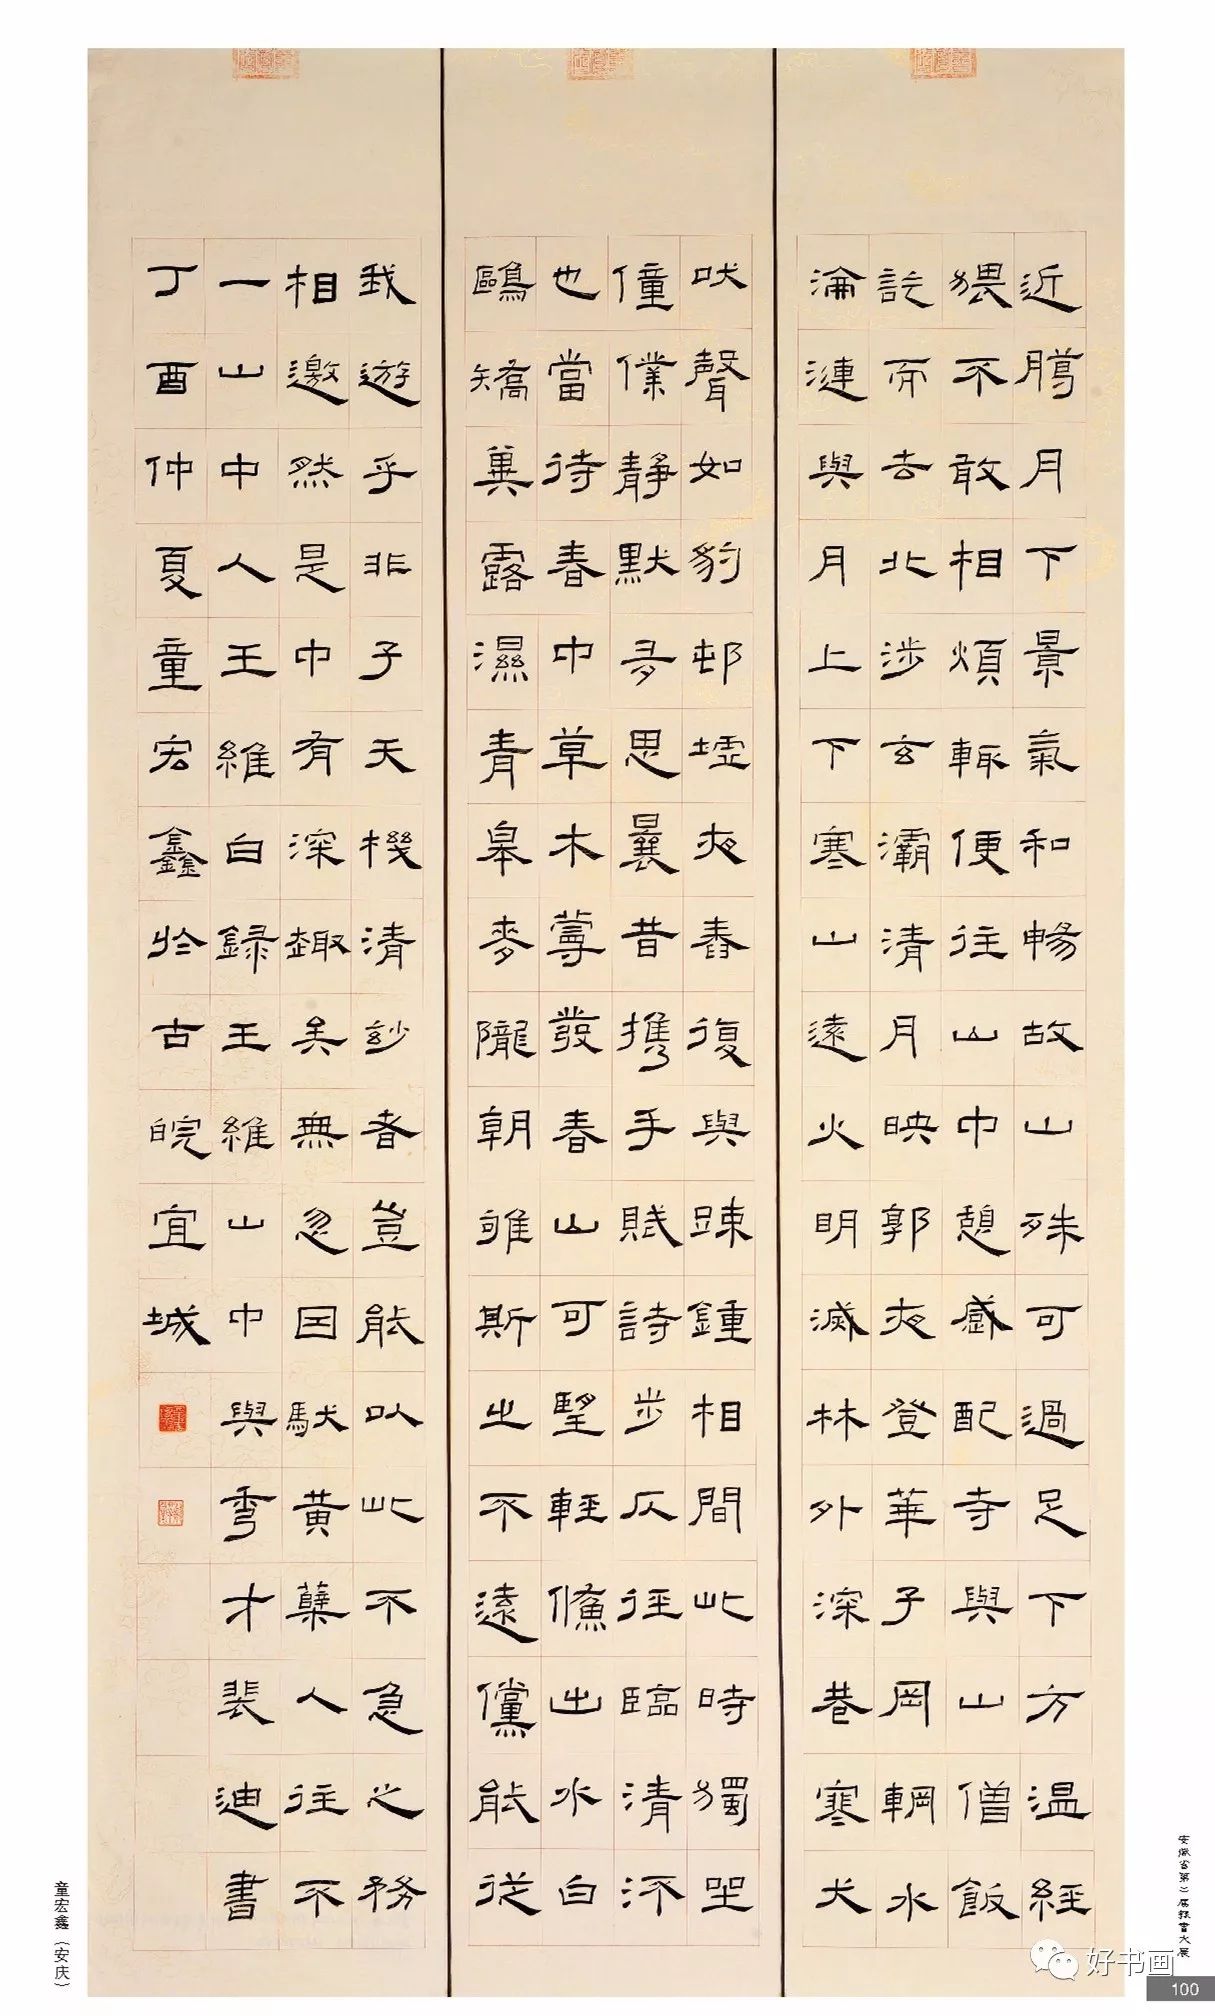 近臈月下景氣和暢故山殊可過足下方温經
猥不敢相煩輒便往山中憩感配寺與山僧飯
訖而去北涉玄灞清月映郭夜登華子岡輞水
淪漣與月上下寒山遠火明滅林外深巷寒犬
吠聲如豹邨墟夜舂復與踈鍾相間此時獨坐
僮僕靜默多思曩昔携手賦詩步仄徑臨清流
也當待春中草木蔓發春山可望輕鯈出水白
鷗矯翼露濕青皋麥隴朝雊斯之不遠儻能從
我遊乎非子天機清妙者豈能以此不急之務
相邀然是中有深趣矣無忽因馱黃蘗人往不
一山中人王維白録王維山中與秀才裴迪書
丁酉仲夏童宏鑫於古皖宜城
童宏鑫（安庆）
安徽省第二届隶书大展
好书画
100